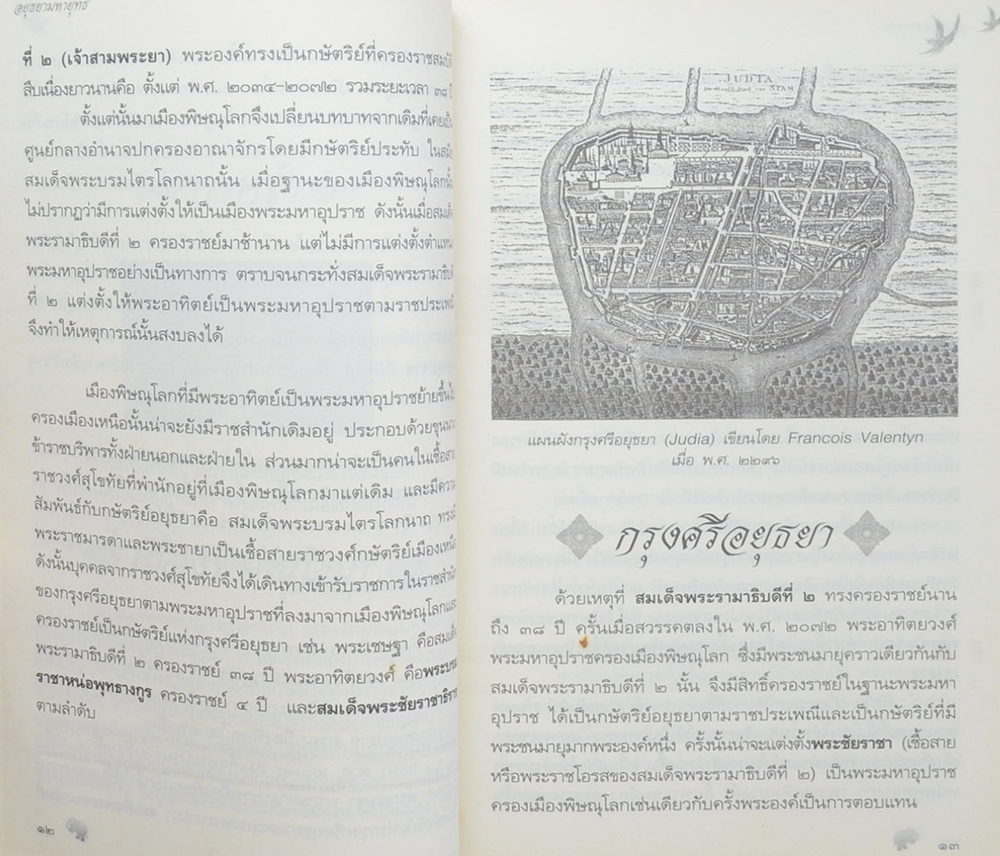 อยุธยามหายุทธ
ที่ ๒ (เจ้าสามพระยา) พระองค์ทรงเป็นกษัตริย์ที่ครองราชสมบัติ
สืบเนื่องยาวนานคือ ตั้งแต่ พ.ศ. ๒๐๓๔-๒๐๗๒ รวมระยะเวลา ๓๘ ปี
ตั้งแต่นั้นมาเมืองพิษณุโลกจึงเปลี่ยนบทบาทจากเดิมที่เคยเป็น
ศูนย์กลางอำนาจปกครองอาณาจักรโดยมีกษัตริย์ประทับ ในสมัย
สมเด็จพระบรมไตรโลกนาถนั้น เมื่อฐานะของเมืองพิษณุโลก
ไม่ปรากฏว่ามีการแต่งตั้งให้เป็นเมืองพระมหาอุปราช ดังนั้นเมื่อสมเด็จ
พระรามาธิบดีที่ ๒ ครองราชย์มาช้านาน แต่ไม่มีการแต่งตั้งตำแหน่ง
พระมหาอุปราชอย่างเป็นทางการ ตราบจนกระทั่งสมเด็จพระรามาธิบดี
ที่ ๒ แต่งตั้งให้พระอาทิตย์เป็นพระมหาอุปราชตามราชประเพณี
จึงทำให้เหตุการณ์นั้นสงบลงได้
เมืองพิษณุโลกที่มีพระอาทิตย์เป็นพระมหาอุปราชย้ายขึ้นไป
ครองเมืองเหนือนั้นน่าจะยังมีราชสำนักเดิมอยู่ ประกอบด้วยขุนนาง
ข้าราชบริพารทั้งฝ่ายนอกและฝ่ายใน ส่วนมากน่าจะเป็นคนในเชื้อสาย
ราชวงศ์สุโขทัยที่พำนักอยู่ที่เมืองพิษณุโลกมาแต่เดิม และมีความ
สัมพันธ์กับกษัตริย์อยุธยาคือ สมเด็จพระบรมไตรโลกนาถ ทรงมี
พระราชมารดาและพระชายาเป็นเชื้อสายราชวงศ์กษัตริย์เมืองเหนือ
ดังนั้นบุคคลจากราชวงศ์สุโขทัยจึงได้เดินทางเข้ารับราชการในราชสำนัก
ของกรุงศรีอยุธยาตามพระมหาอุปราชที่ลงมาจากเมืองพิษณุโลกและ
ครองราชย์เป็นกษัตริย์แห่งกรุงศรีอยุธยา เช่น พระเชษฐา คือสมเด็จ
พระรามาธิบดีที่ ๒ ครองราชย์ ๓๘ ปี พระอาทิตยวงศ์ คือพระบรม
ราชาหน่อพุทธางกูร ครองราชย์ ๔ ปี และสมเด็จพระชัยราชาธิราช
ตามลำดับ
๑๒
JUDIA
แผนผังกรุงศรีอยุธยา (Judia) เขียนโดย Francois Valentyn
เมื่อ พ.ศ. ๒๒๙๖
กรุงศรีอยุธยา
ด้วยเหตุที่ สมเด็จพระรามาธิบดีที่ ๒ ทรงครองราชย์นาน
ถึง ๓๘ ปี ครั้นเมื่อสวรรคตลงใน พ.ศ. ๒๐๗๒ พระอาทิตยวงศ์
พระมหาอุปราชครองเมืองพิษณุโลก ซึ่งมีพระชนมายุคราวเดียวกันกับ
สมเด็จพระรามาธิบดีที่ ๒ นั้น จึงมีสิทธิ์ครองราชย์ในฐานะพระมหา
อุปราช ได้เป็นกษัตริย์อยุธยาตามราชประเพณีและเป็นกษัตริย์ที่มี
พระชนมายุมากพระองค์หนึ่ง ครั้งนั้นน่าจะแต่งตั้งพระชัยราชา (เชื้อสาย
หรือพระราชโอรสของสมเด็จพระรามาธิบดีที่ ๒) เป็นพระมหาอุปราช
ครองเมืองพิษณุโลกเช่นเดียวกับครั้งพระองค์เป็นการตอบแทน
๑๓